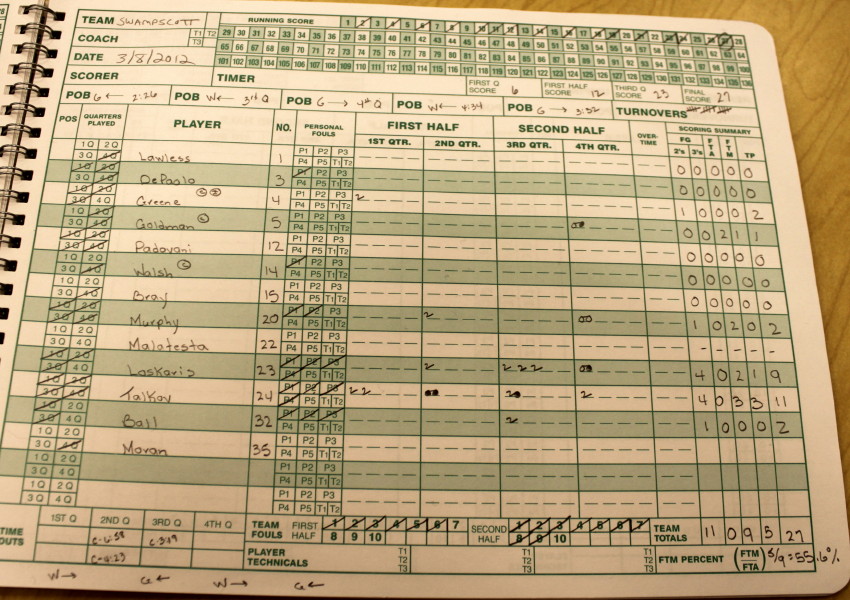 TEAM SWAMPSCOTT RUNNING SCORE 1 2 3 4 5 6 7 8 9 10 11 12 13 14 15 16 17 18 19 20 21 22 23 24 25 26 27 28
COACH T1 T2 T3 29 30 31 32 33 34 35 36 37 38 39 40 41 42 43 44 45 46 47 48 49 50 51 52 53 54 55 56 57 58 59 60 61 62 63 64
65 66 67 68 69 70 71 72 73 74 75 76 77 78 79 80 81 82 83 84 85 86 87 88 89 90 91 92 93 94 95 96 97 98 99 100
DATE 3/8/2012 101 102 103 104 105 106 107 108 109 110 111 112 113 114 115 116 117 118 119 120 121 122 123 124 125 126 127 128 129 130 131 132 133 134 135 136
SCORER TIMER FIRST Q SCORE 6 FIRST HALF SCORE 12 THIRD Q SCORE 23 FINAL SCORE 27
POB G ← 2:26 POB W ← 3rd Q POB G → 4th Q POB W ← 4:34 POB G → 3:32 TURNOVERS
POS QUARTERS PLAYED PLAYER NO. PERSONAL FOULS FIRST HALF SECOND HALF OVER-TIME SCORING SUMMARY
1ST QTR. 2ND QTR. 3RD QTR. 4TH QTR. FG 2's 3's FTA FTM TP
1Q 2Q 3Q 4Q Lawless 1 P1 P2 P3 P4 P5 T1 T2 0 0 0 0 0
1Q 2Q 3Q 4Q DePaolo 3 P1 P2 P3 P4 P5 T1 T2 0 0 0 0 0
1Q 2Q 3Q 4Q Greene 4 P1 P2 P3 P4 P5 T1 T2 2 1 0 0 0 2
1Q 2Q 3Q 4Q Goldman C 5 P1 P2 P3 P4 P5 T1 T2 0 0 2 1 1
1Q 2Q 3Q 4Q Padovani 12 P1 P2 P3 P4 P5 T1 T2 0 0 0 0 0
1Q 2Q 3Q 4Q Walsh C 14 P1 P2 P3 P4 P5 T1 T2 0 0 0 0 0
1Q 2Q 3Q 4Q Bray 15 P1 P2 P3 P4 P5 T1 T2 0 0 0 0 0
1Q 2Q 3Q 4Q Murphy 20 P1 P2 P3 P4 P5 T1 T2 2 00 1 0 2 0 2
1Q 2Q 3Q 4Q Malatesta 22 P1 P2 P3 P4 P5 T1 T2 - - - - -
1Q 2Q 3Q 4Q Laskaris 23 P1 P2 P3 P4 P5 T1 T2 2 2 2 2 4 0 2 1 9
1Q 2Q 3Q 4Q Talkov 24 P1 P2 P3 P4 P5 T1 T2 2 2 2 2 4 0 3 3 11
1Q 2Q 3Q 4Q Ball 32 P1 P2 P3 P4 P5 T1 T2 2 1 0 0 0 2
1Q 2Q 3Q 4Q Moran 35 P1 P2 P3 P4 P5 T1 T2
1Q 2Q 3Q 4Q P1 P2 P3 P4 P5 T1 T2
1Q 2Q 3Q 4Q P1 P2 P3 P4 P5 T1 T2
TIME OUTS 1ST Q 2ND Q 3RD Q 4TH Q TEAM FOULS FIRST HALF 1 2 3 4 5 6 7 8 9 10 SECOND HALF 1 2 3 4 5 6 7 8 9 10 TEAM TOTALS 11 0 9 5 27
PLAYER TECHNICALS T1 T2 T3 T1 T2 T3 T1 T2 T3 FTM PERCENT (FTM FTA) 5/9=55.6%
W → G ← W → G ←